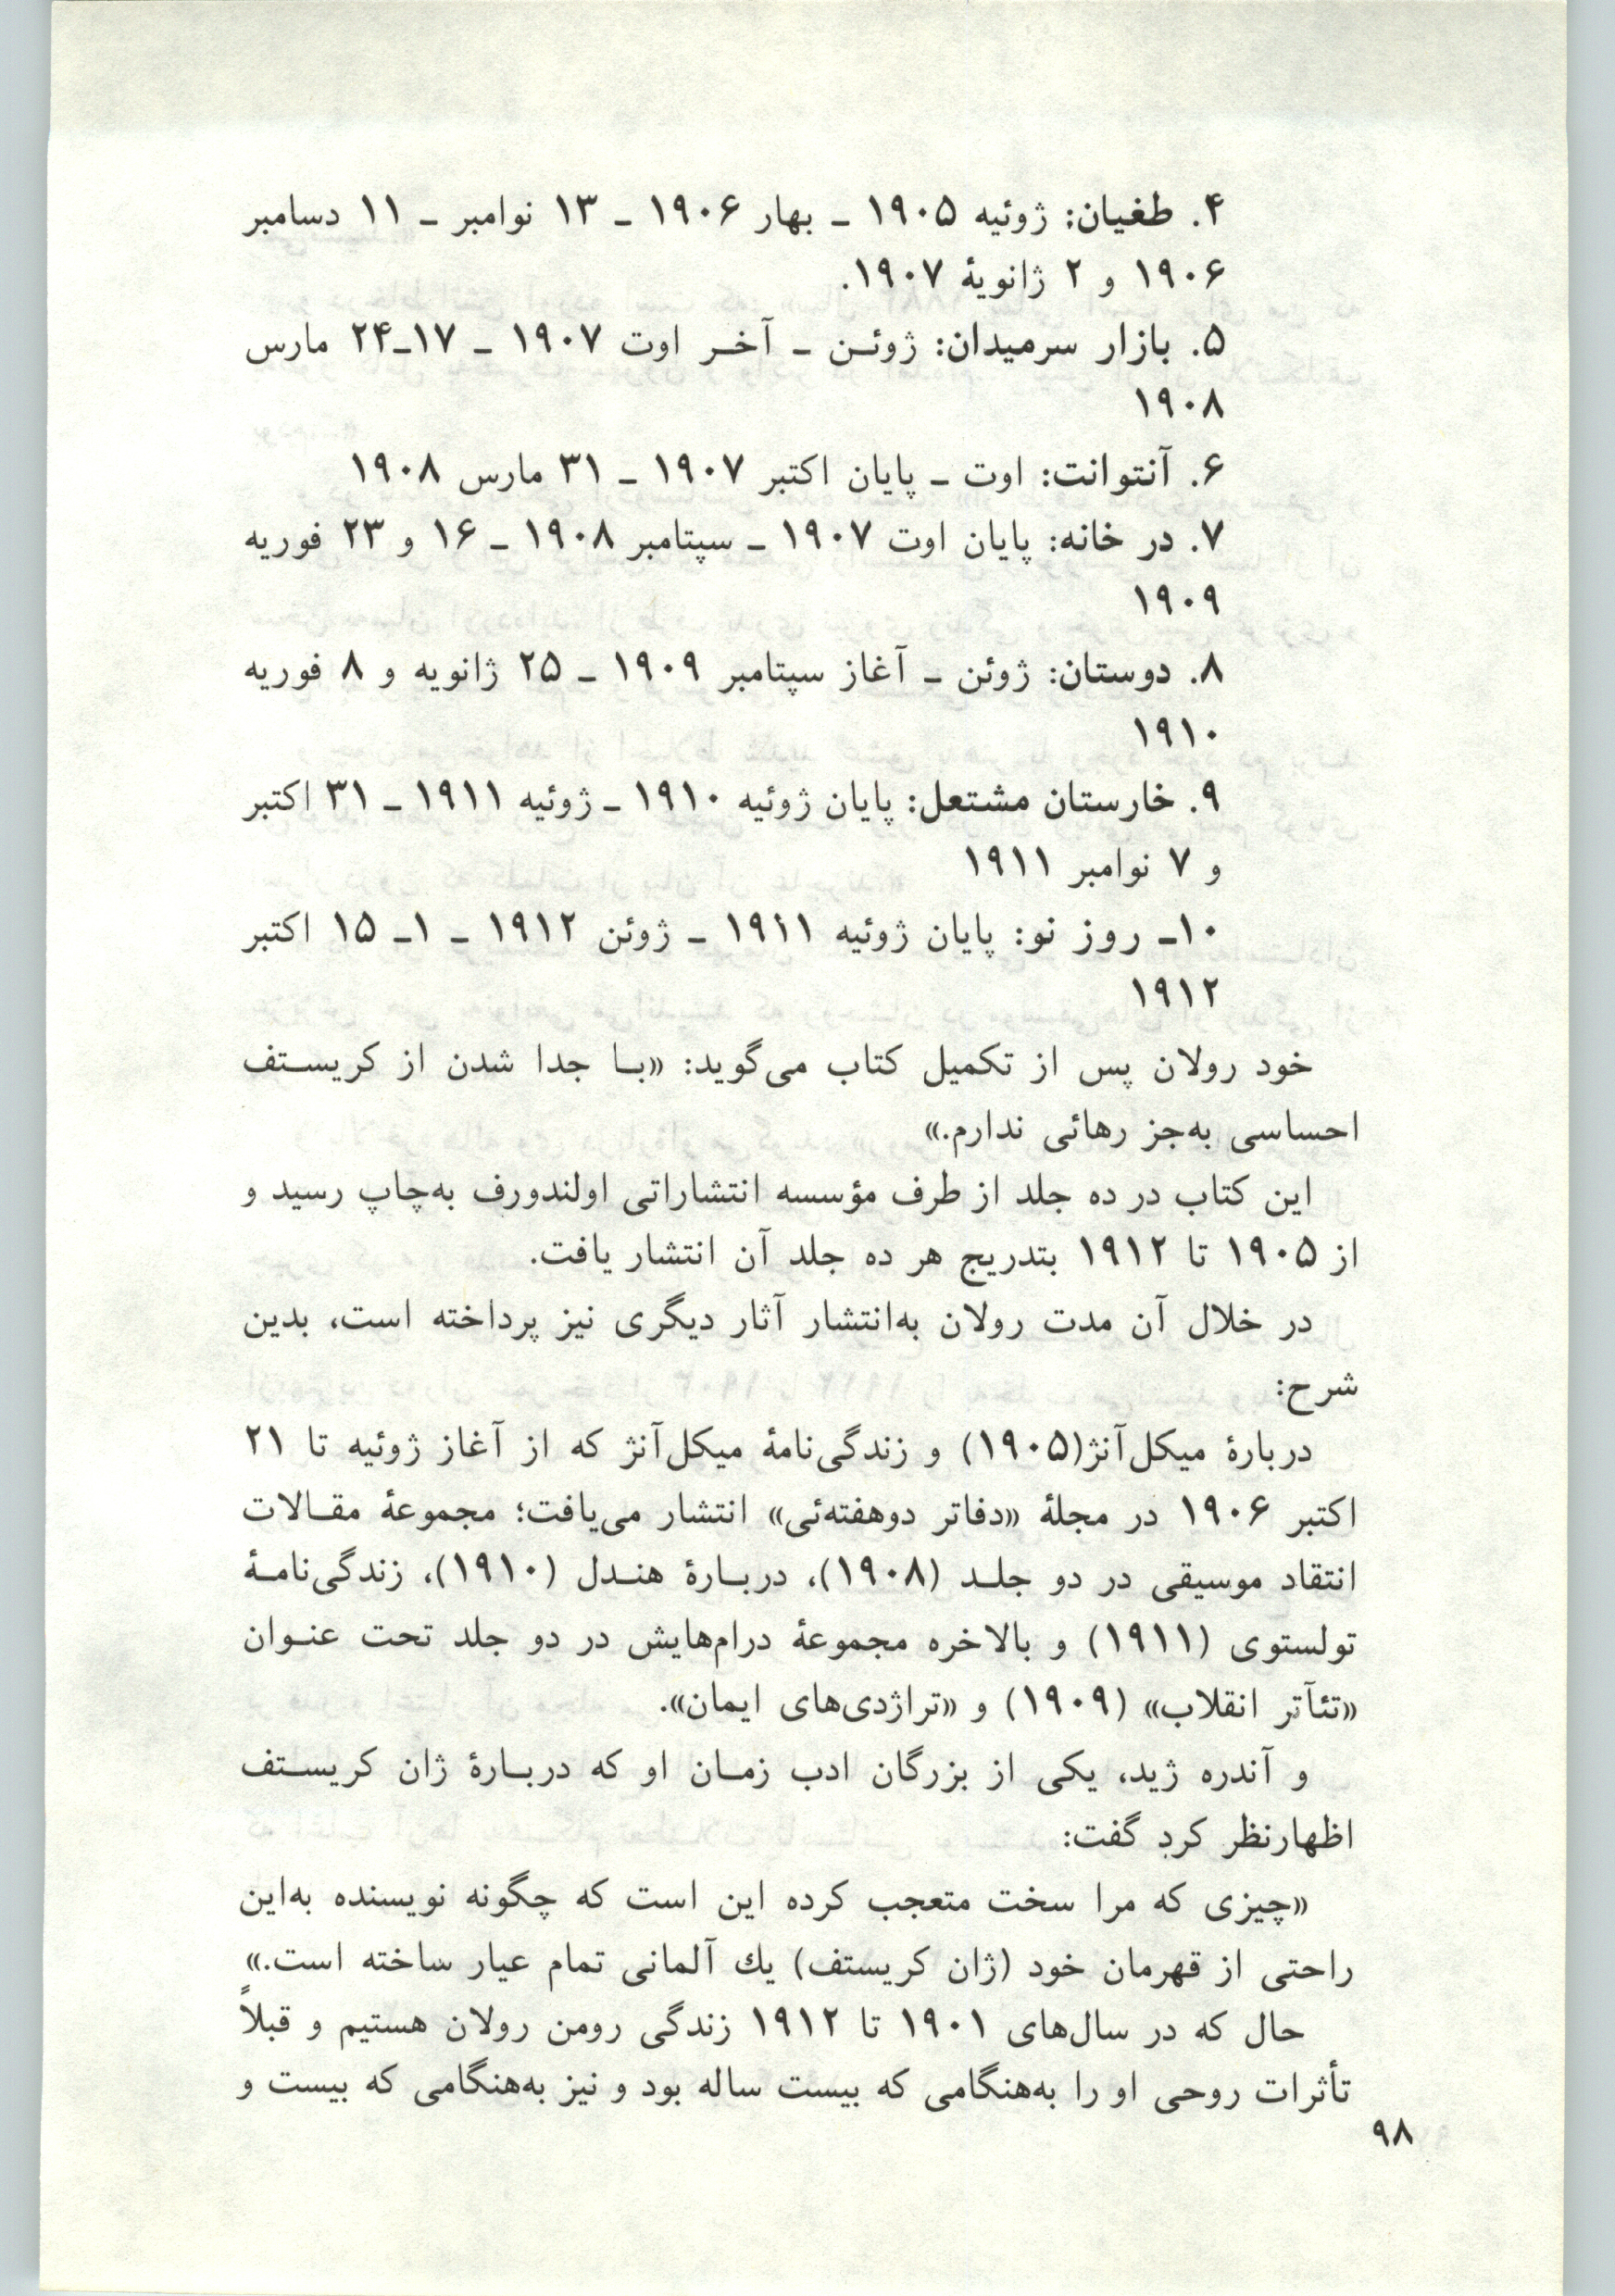 ۴. طغیان: ژوئیه ۱۹۰۵ ـ بهار ۱۹۰۶ ـ ۱۳ نوامبر ـ ۱۱ دسامبر
۱۹۰۶ و ۲ ژانویهٔ ۱۹۰۷.
۵. بازار سرمیدان: ژوئـن ـ آخـر اوت ۱۹۰۷ ـ ۱۷ـ۲۴ مارس
۱۹۰۸
۶. آنتوانت: اوت ـ پایان اکتبر ۱۹۰۷ ـ ۳۱ مارس ۱۹۰۸
۷. در خانه: پایان اوت ۱۹۰۷ ـ سپتامبر ۱۹۰۸ ـ ۱۶ و ۲۳ فوریه
۱۹۰۹
۸. دوستان: ژوئن ـ آغاز سپتامبر ۱۹۰۹ ـ ۲۵ ژانویه و ۸ فوریه
۱۹۱۰
۹. خارستان مشتعل: پایان ژوئیه ۱۹۱۰ ـ ژوئیه ۱۹۱۱ ـ ۳۱ اکتبر
و ۷ نوامبر ۱۹۱۱
۱۰ـ روز نو: پایان ژوئیه ۱۹۱۱ ـ ژوئن ۱۹۱۲ ـ ۱ـ ۱۵ اکتبر
۱۹۱۲
خود رولان پس از تکمیل کتاب می‌گوید: «بـا جدا شدن از کریسـتف
احساسی به‌جز رهائی ندارم.»
این کتاب در ده جلد از طرف مؤسسه انتشاراتی اولندورف به‌چاپ رسید و
از ۱۹۰۵ تا ۱۹۱۲ بتدریج هر ده جلد آن انتشار یافت.
در خلال آن مدت رولان به‌انتشار آثار دیگری نیز پرداخته است، بدین
شرح:
دربارهٔ میکل‌آنژ(۱۹۰۵) و زندگی‌نامهٔ میکل‌آنژ که از آغاز ژوئیه تا ۲۱
اکتبر ۱۹۰۶ در مجلهٔ «دفاتر دوهفته‌ئی» انتشار می‌یافت؛ مجموعهٔ مقـالات
انتقاد موسیقی در دو جلـد (۱۹۰۸)، دربـارهٔ هنـدل (۱۹۱۰)، زندگی‌نامـهٔ
تولستوی (۱۹۱۱) و بالاخره مجموعهٔ درام‌هایش در دو جلد تحت عنـوان
«تئآتر انقلاب» (۱۹۰۹) و «تراژدی‌های ایمان».
و آندره ژید، یکی از بزرگان ادب زمـان او که دربـارهٔ ژان کریسـتف
اظهارنظر کرد گفت:
«چیزی که مرا سخت متعجب کرده این است که چگونه نویسنده به‌این
راحتی از قهرمان خود (ژان کریستف) یك آلمانی تمام عیار ساخته است.»
حال که در سال‌های ۱۹۰۱ تا ۱۹۱۲ زندگی رومن رولان هستیم و قبلاً
تأثرات روحی او را به‌هنگامی که بیست ساله بود و نیز به‌هنگامی که بیست و
۹۸